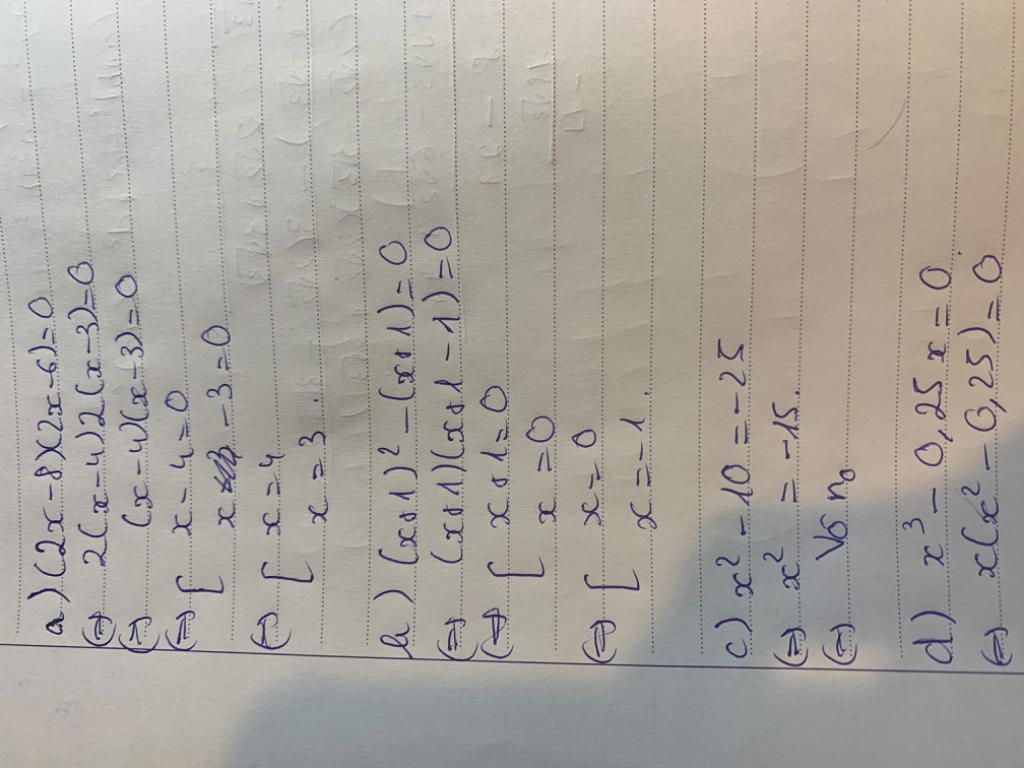 a) (2x-8)(2x-6)=0
⇔ 2(x-4)2(x-3)=0
⇔ (x-4)(x-3)=0
⇔ [ x-4=0
x-3=0
⇔ [ x=4
x=3.
b) (x+1)² - (x+1)=0
⇔ (x+1)(x+1-1)=0
⇔ [ x+1=0
x=0
⇔ [ x=0
x=-1.
c) x² - 10 = -25
⇔ x² = -15.
⇔ Vô n₀
d) x³ - 0,25x = 0
⇔ x(x² - 0,25) = 0